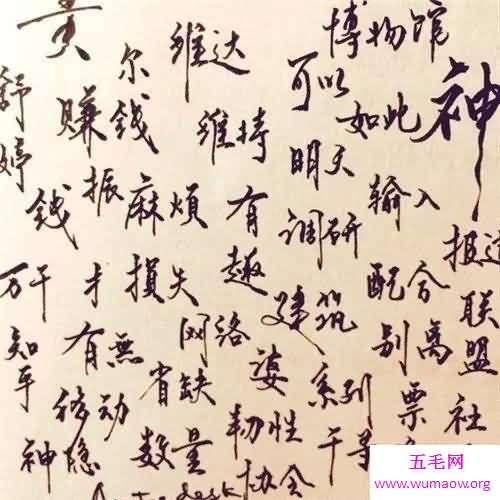 黄
舒婷
赚钱
钱
振
尔
维达
维持
麻烦
有趣
可以
博物馆
如此
神
明天
调研
输入
报道
万千
才
损失
建筑
配合
联盟
知乎
有无
网络
别离
省缺
婆
系列
票
社
神隐
移动
数量
韧性
协会
干
五毛网
www.wumaow.org